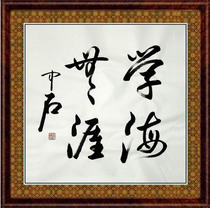 学海
無涯
中石